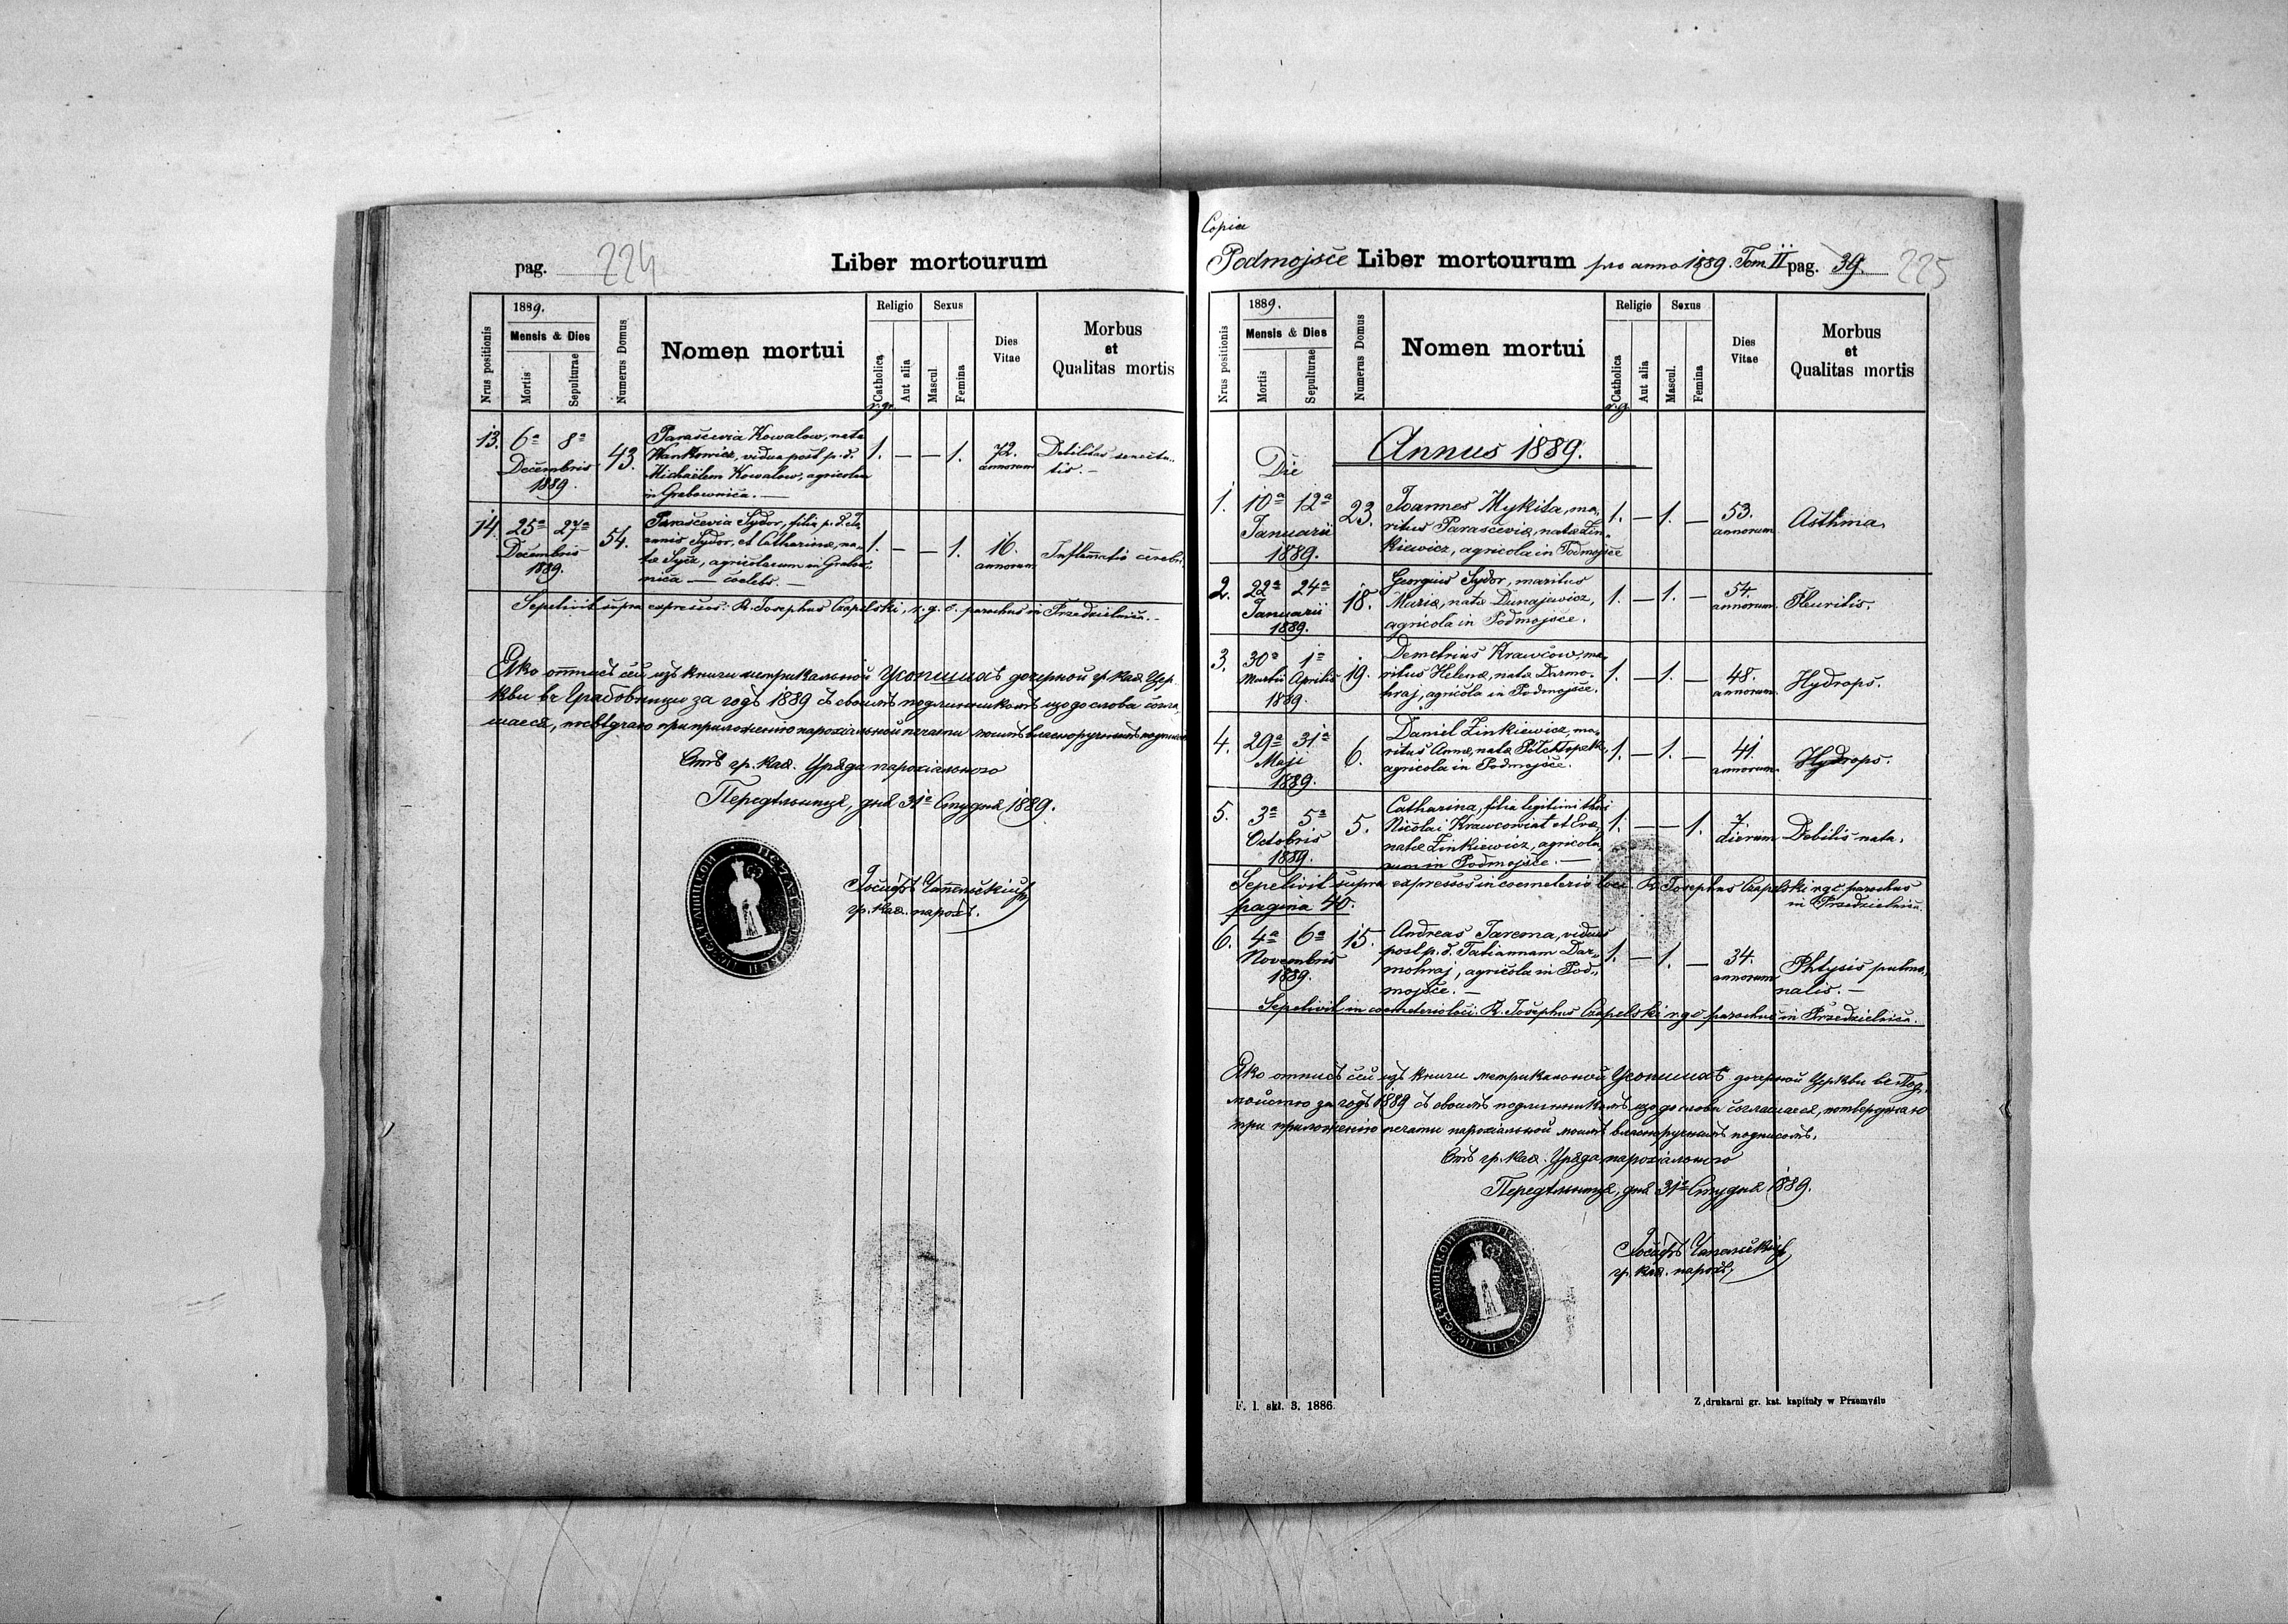 pag. 224
Liber mortourum
Nrus positionis
1889.
Mensis & Dies
Mortis
Sepulturae
Numerus Domus
Nomen mortui
Religio
Catholica
r.g.
Aut alia
Sexus
Mascul.
Femina
Dies
Vitae
Morbus
et
Qualitas mortis
13. 6a 8a Decembris 1889. 43.
Parascevia Kowalow, nata
Wankowicz, vidua post p. d.
Michaëlem Kowalow, agricolam
in Grabownica. —
1. — — 1. 72. annorum
Debilitas senectu-
tis. —
14. 25a 27a Decembris 1889. 54.
Parascevia Sydor, filia p. d.
Sydor, et Catharinæ, na-
tæ Sycz, agricolarum in Grabow-
nica — coelebs. —
1. — — 1. 16. annorum
Inflamatio cerebri.
Sepelivit supra expressos: R. Josephus Czapelski, r. g. c. parochus in Przedzielnica. —
Яко отписъ сей изъ книги метрикальной Усопшихъ дочерной гр. каѳ. Цер-
кви въ Грабовници за годъ 1889 съ своимъ подлинникомъ що до слова согла-
шаеся, потверджаю при приложенію парохіяльной печати моимъ власноручнымъ подписомъ
Отъ гр. каѳ. Уряда парохіяльного
Передѣльница, дня 31го Студня 1889.
Іосифъ Чапельскій
гр. каѳ. парохъ.
Copia
Podmojsce Liber mortourum pro anno 1889. Tom II pag. 39. 225
Nrus positionis
1889.
Mensis & Dies
Mortis
Sepulturae
Numerus Domus
Nomen mortui
Religio
Catholica
r.g.
Aut alia
Sexus
Mascul.
Femina
Dies
Vitae
Morbus
et
Qualitas mortis
Annus 1889.
Die
1. 10a 12a Januarii 1889. 23.
Joannes Mykita, ma-
ritus Parasceviæ, natæ Zin-
kiewicz, agricola in Podmojsce
1. — 1. — 53. annorum
Asthma.
2. 22a 24a Januarii 1889. 18.
Georgius Sydor, maritus
Mariæ, natæ Dunajewicz,
agricola in Podmojsce.
1. — 1. — 54. annorum
Pleuritis.
3. 30a 1a Martii Aprilis 1889. 19.
Demetrius Krawców, ma-
ritus Helenæ, natæ Darmo-
hraj, agricola in Podmojsce.
1. — 1. — 48. annorum
Hydrops.
4. 29a 31a Maji 1889. 6.
Daniel Zinkiewicz, ma-
ritus Annæ, natæ
agricola in Podmojsce.
1. — 1. — 41. annorum
Hydrops.
5. 3a 5a Octobris 1889. 5.
Catharina, filia legitimi thori
Nicolai Krawcowiat et Evæ,
natæ Zinkiewicz, agricola-
rum in Podmojsce. —
1. — — 1. 7. dierum
Debilis nata.
Sepelivit supra expressos in coemeterio loci: R. Josephus Czapelski r g c parochus
in Przedzielnica.
pagina 40.
6. 4a 6a Novembris 1889. 15.
Andreas Jarema, viduus
post p. d. Tatiannam Dar-
mohraj, agricola in Pod-
mojsce. —
1. — 1. — 34. annorum
Phtysis pulmo-
nalis. —
Sepelivit in coemeterio loci: R. Josephus Czapelski r g c parochus in Przedzielnica.
Яко отписъ сей изъ книги метрикальной Усопшихъ дочерной Церкви въ Под-
мойстю за годъ 1889 съ своимъ подлинникомъ що до слова соглашаеся, потверджаю
при приложенію печати парохіяльной моимъ власноручнымъ подписомъ.
Отъ гр. каѳ. Уряда парохіяльного
Передѣльница, дня 31го Студня 1889.
Іосифъ Чапельскій
гр. каѳ. парохъ
F. l. skł. 3. 1886.
Z drukarni gr. kat. kapituły w Przemyślu